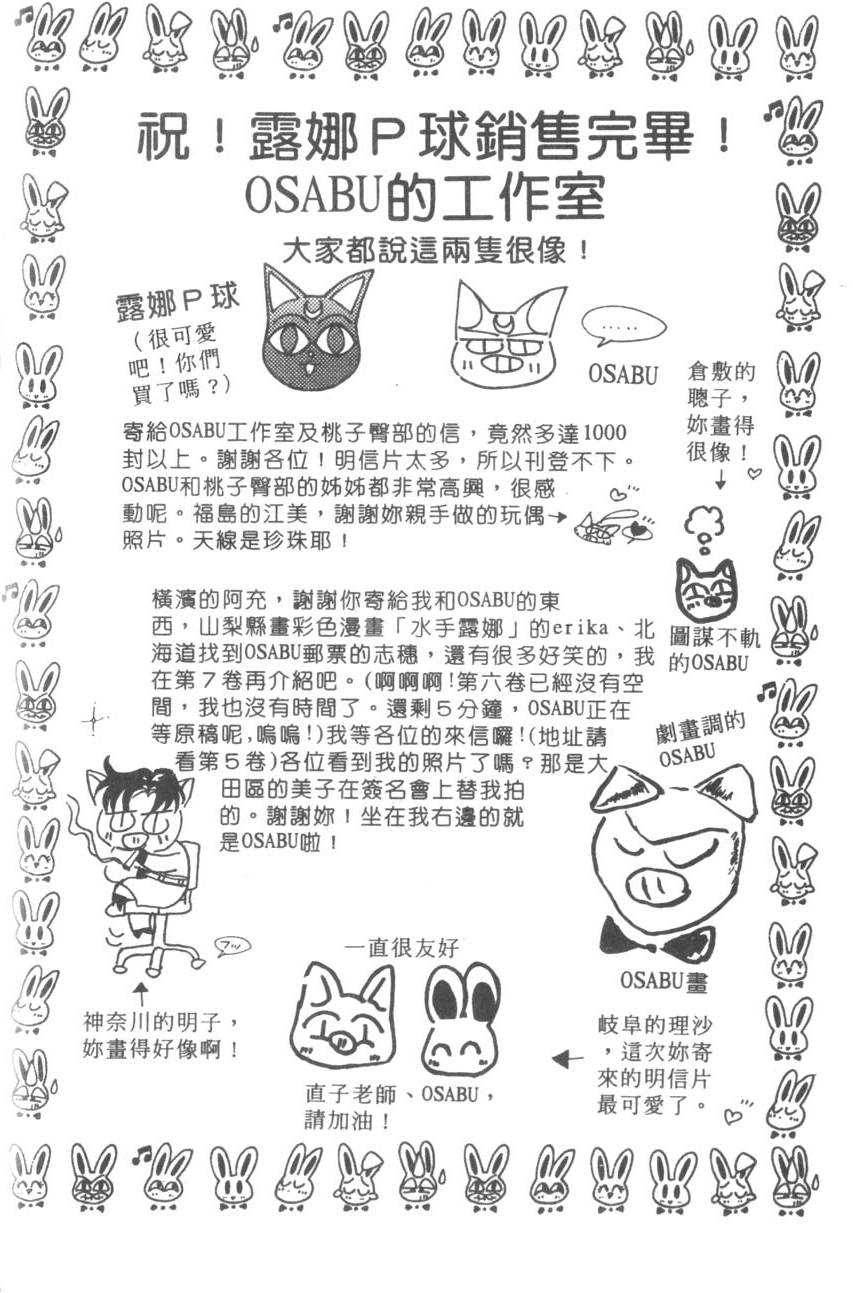 祝！露娜P球銷售完畢！
OSABU的工作室
大家都說這兩隻很像！
露娜P球
(很可愛
吧！你們
買了嗎？)
……
OSABU
倉敷的
聰子，
妳畫得
很像！
寄給OSABU工作室及桃子臀部的信，竟然多達1000
封以上。謝謝各位！明信片太多，所以刊登不下。
OSABU和桃子臀部的姊姊都非常高興，很感
動呢。福島的江美，謝謝妳親手做的玩偶
照片。天線是珍珠耶！
圖謀不軌
的OSABU
橫濱的阿充，謝謝你寄給我和OSABU的東
西，山梨縣畫彩色漫畫「水手露娜」的erika、北
海道找到OSABU郵票的志穗，還有很多好笑的，我
在第7卷再介紹吧。(啊啊啊!第六卷已經沒有空
間，我也沒有時間了。還剩5分鐘，OSABU正在
等原稿呢,嗚嗚!)我等各位的來信囉!(地址請
看第5卷)各位看到我的照片了嗎？那是大
田區的美子在簽名會上替我拍
的。謝謝妳！坐在我右邊的就
是OSABU啦！
劇畫調的
OSABU
OSABU畫
フッ
神奈川的明子，
妳畫得好像啊！
一直很友好
直子老師、OSABU，
請加油！
岐阜的理沙
，這次妳寄
來的明信片
最可愛了。